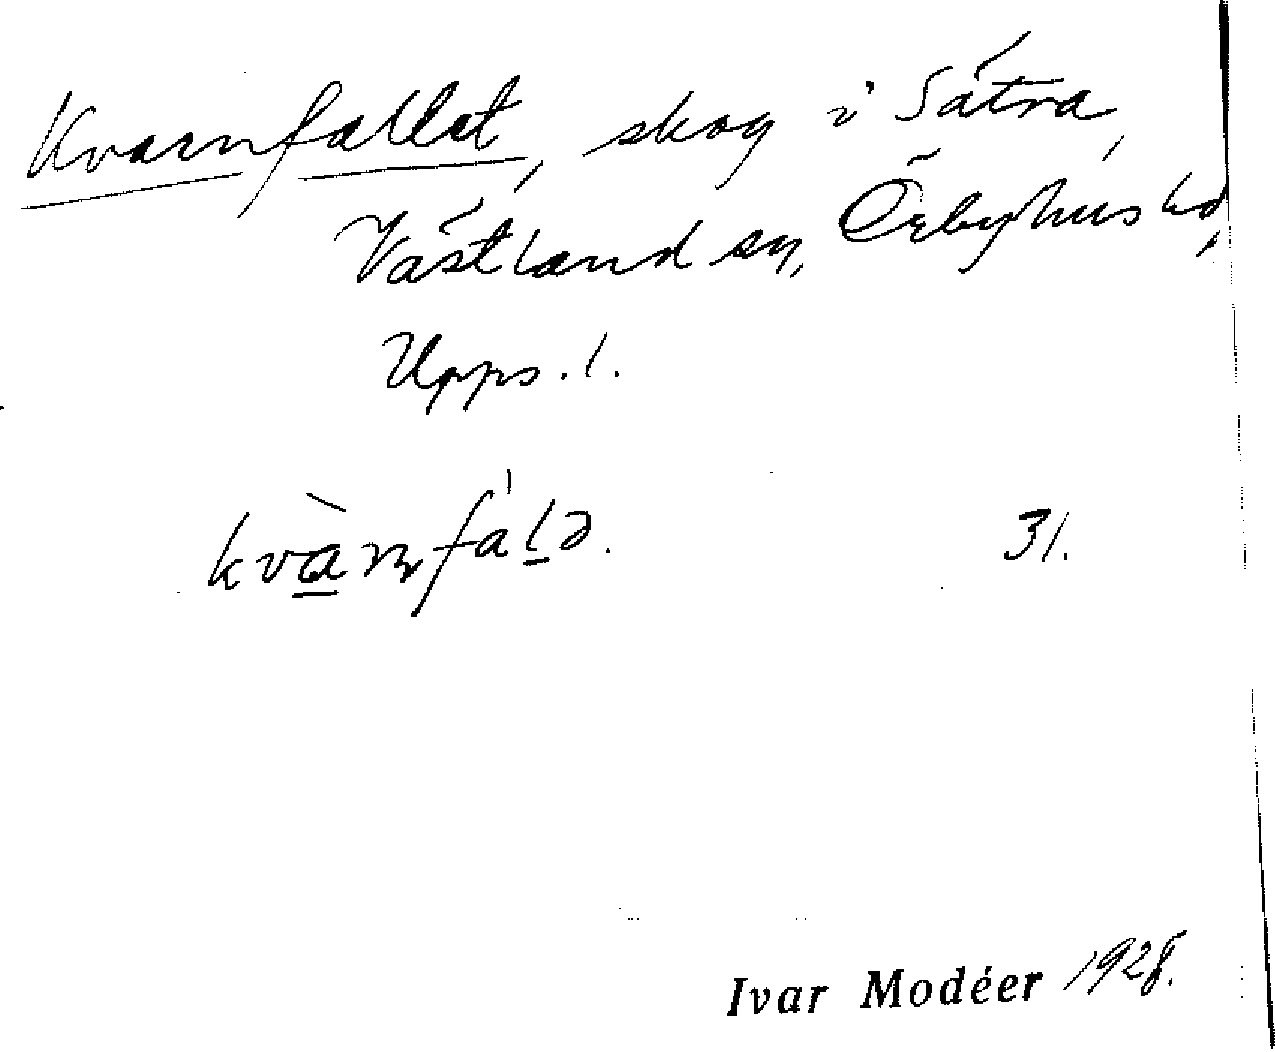 Kvarnfallet, skog i Sätra,
Västland sn, Örbyhus hd,
Upps. l.
kvàɳfálə. 31.
Ivar Modéer 1928.